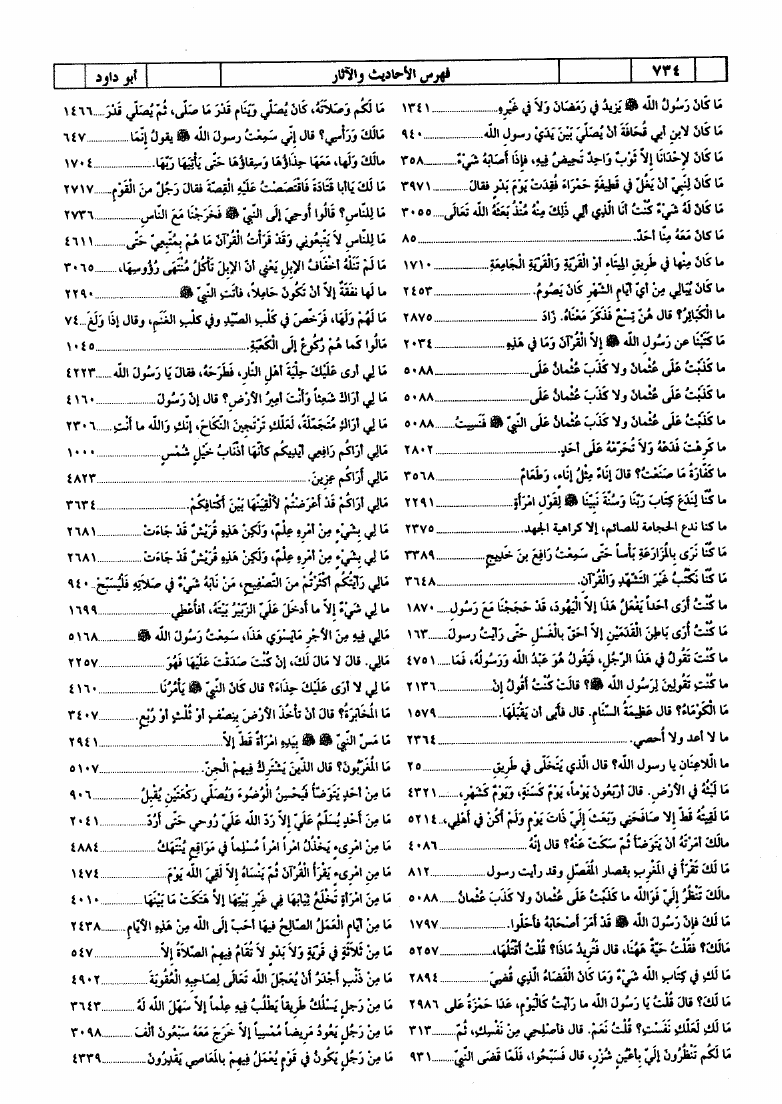 ٧٣٤ فهرس الأحاديث والآثار أبو داود
مَا كَانَ رَسُولُ الله ﷺ يَزِيدُ في رَمَضَانَ وَلاَ في غَيْرِهِ ١٣٤١
مَا كَانَ لابنِ أبي قُحَافَةَ أنْ يُصَلِّيَ بَيْنَ يَدَيْ رسولِ الله ٩٤٠
مَا كَانَ لإحْدَانَا إلاَّ ثَوْبٌ وَاحِدٌ تَحِيضُ فِيهِ، فإِذَا أصَابَهُ شَيْءٌ ٣٥٨
مَا كَانَ لِنَبِيٍّ أنْ يَغُلَّ في قَطِيفَةٍ حَمْرَاءَ فُقِدَتْ يَوْمَ بَدْرٍ فقالَ ٣٩٧١
مَا كَانَ لَهُ شَيْءٌ كُنْتُ أنَا الَّذِي ألِي ذَلِكَ مِنْهُ مُنْذُ بَعَثَهُ الله تَعَالَى ٣٠٥٥
مَا كانَ مَعَهُ مِنَّا أحَدٌ. ٨٥
مَا كانَ مِنْها في طَرِيقِ المِيتاءِ أوْ القَرْيَةِ وَالْقَرْيَةِ الْجَامِعَةِ ١٧١٠
مَا كَانَ يُبَالِي مِنْ أيِّ أيَّامِ الشَّهْرِ كَانَ يَصُومُ. ٢٤٥٣
ما الْكَبَائِرُ؟ قال: هُنَّ تِسْعٌ فَذَكَرَ مَعْنَاهُ. زَادَ ٢٨٧٥
مَا كَتَبْنَا عن رَسُولِ الله ﷺ إلاَّ الْقُرْآنَ وَمَا في هَذِهِ ٢٠٣٤
ما كَذَبْتُ عَلَى عُثْمانَ ولا كَذَبَ عُثْمانُ عَلَى ٥٠٨٨
ما كَذَبْتُ عَلَى عُثْمانَ ولا كَذَبَ عُثْمانُ عَلَى ٥٠٨٨
ما كَذَبْتُ عَلَى عُثْمانَ ولا كَذَبَ عُثْمانُ عَلَى النَّبيِّ ﷺ فَنَسِيتُ ٥٠٨٨
مَا كَرِهْتَ فَدَعْهُ وَلاَ تُحَرِّمْهُ عَلَى أحَدٍ. ٢٨٠٢
ما كَفَّارَةُ مَا صَنَعْتُ؟ قالَ: إنَاءٌ مِثْلُ إنَاءٍ، وَطَعَامٌ ٣٥٦٨
ما كُنَّا لِنَدَعَ كِتَابَ رَبِّنَا وَسُنَّةَ نَبِيِّنَا ﷺ لِقَوْلِ امْرَأةٍ ٢٢٩١
ما كنا ندع الحجامة للصائم، إلا كراهية الجهد. ٢٣٧٥
مَا كُنَّا نَرَى بالْمُزَارَعَةِ بَأساً حَتَّى سَمِعْتُ رَافِعَ بنَ خَدِيجٍ ٣٣٨٩
مَا كُنَّا نَكْتُبُ غَيْرَ التَّشَهُّدِ وَالْقُرْآنِ. ٣٦٤٨
ما كُنْتُ أُرَى أحَداً يَفْعَلُ هَذَا إلاَّ الْيَهُودَ، قَدْ حَجَجْنَا مَعَ رَسُولِ ١٨٧٠
مَا كُنْتُ أُرَى بَاطِنَ الْقَدَمَيْنِ إلاَّ أحَقَّ بالْغَسْلِ حَتَّى رَأيْتُ رسولَ ١٦٣
ما كُنْتَ تَقُولُ في هَذَا الرَّجُلِ، فَيَقُولُ هُوَ عَبْدُ الله وَرَسُولُهُ، فَمَا ٤٧٥١
ما كُنْتِ تَقُولِينَ لِرَسُولِ الله ﷺ؟ قالَتْ كُنْتُ أقُولُ إنْ ٢١٣٦
مَا الْكَوْمَاءُ؟ قال: عَظِيمَةُ السَّنَامِ. قال فأبَى أنْ يَقْبَلَهَا. ١٥٧٩
ما لا أعد ولا أحصي. ٢٣٦٤
ما اللاَّعِنَانِ يا رسولَ الله؟ قال: الَّذِي يَتَخَلَّى في طَرِيقِ ٢٥
مَا لَبْثُهُ في الأرْضِ. قالَ: أرْبَعُونَ يَوْماً، يَوْمٌ كَسَنَةٍ، وَيَوْمٌ كَشَهْرٍ، ٤٣٢١
ما لَقِيتُهُ قَطُّ إلاَّ صَافَحَنِي وَبَعَثَ إلَيَّ ذَاتَ يَوْمٍ وَلَمْ أكُنْ في أهْلِي، ٥٢١٤
مالَكَ أمَرْتَهُ أنْ يَتَوَضَّأَ ثُمَّ سَكَتَّ عَنْهُ؟ قال: إنَّهُ ٤٠٨٦
مَا لَكَ تَقْرَأُ في المَغْرِبِ بِقِصَارِ المُفَصَّلِ وقد رأيت رسول ٨١٢
مالَكَ تَنْظُرُ إلَيَّ فَوَالله ما كَذَبْتُ عَلَى عُثْمانَ ولا كَذَبَ عُثْمانُ ٥٠٨٨
مَا لَكَ فإنَّ رسولَ الله ﷺ قَدْ أمَرَ أصْحَابَهُ فأحَلُّوا. ١٧٩٧
مَالَكَ؟ فقُلْتُ حَيَّةٌ هَهُنَا، قال: فَتُرِيدُ مَاذَا؟ قُلْتُ أقْتُلُهَا، ٥٢٥٧
مَا لَكِ في كِتَابِ الله شَيْءٌ وَمَا كَانَ الْقَضَاءُ الَّذِي قُضِيَ ٢٨٩٤
مَا لَكَ؟ قالَ: قُلْتُ يَا رَسُولَ الله مَا رَأيْتُ كَالْيَوْمِ، عَدَا حَمْزَةُ عَلَى ٢٩٨٦
مَا لَكِ لَعَلَّكِ نَفِسْتِ؟ قُلْتُ نَعَمْ. قال: فأصْلِحِي مِنْ نَفْسِكِ، ثُمَّ ٣١٣
مَا لَكُم تَنْظُرُونَ إلَيَّ بأعْيُنٍ شُزْرٍ، قال: فَسَبَّحُوا، فَلَمَّا قَضَى النَّبيُّ ٩٣١
مَا لَكُم وَصَلاَتَهُ، كَانَ يُصَلِّي وَيَنَامُ قَدْرَ مَا صَلَّى، ثُمَّ يُصَلِّي قَدْرَ ١٤٦٦
مَالَكَ وَرَأسِي؟ قال: إنِّي سَمِعْتُ رسولَ الله ﷺ يقولُ إنَّما ٦٤٧
مالَكَ وَلَها، مَعَهَا حِذَاؤُهَا وَسِقاؤُهَا حَتَّى يَأتِيَهَا رَبُّهَا. ١٧٠٤
مَا لَكَ يَاأبَا قَتَادَةَ فَاقْتَصَصْتُ عَلَيْهِ الْقِصَّةَ فقالَ رَجُلٌ منَ الْقَوْمِ ٢٧١٧
مَا لِلنَّاسِ؟ قالُوا أُوحِيَ إلَى النَّبيِّ ﷺ فَخَرَجْنَا مَعَ النَّاسِ ٢٧٣٦
مَا لِلنَّاسِ لاَ يَتَّبِعُونِي وَقَدْ قَرَأْتُ الْقُرْآنَ مَا هُمْ بِمُتَّبِعِيَّ حَتَّى ٤٦١١
مَا لَمْ تَنَلْهُ أخْفَافُ الإبِلِ يَعْنِي أنَّ الإبِلَ تَأكُلُ مُنْتَهَى رُؤُوسِهَا، ٣٠٦٥
ما لَها نَفَقَةٌ إلاَّ أنْ تَكُونَ حَامِلاً، فأتَتِ النَّبيَّ ﷺ ٢٢٩٠
مَا لَهُمْ وَلَهَا، فَرَخَّصَ في كَلْبِ الصَّيْدِ وفي كلْبِ الْغَنَمِ، وقال إذَا وَلَغَ ٧٤
مَالُوا كما هُمْ رُكُوعٌ إلَى الْكَعْبَةِ. ١٠٤٥
مَا لِي أرَى عَلَيْكَ حِلْيَةَ أهْلِ النَّارِ، فَطَرَحَهُ، فقالَ يَا رَسُولَ الله ٤٢٢٣
مَا لِي أرَاكَ شَعِثاً وَأنْتَ أمِيرُ الأرْضِ؟ قال: إنَّ رَسُولَ ٤١٦٠
مَا لِي أرَاكِ مُتَجَمِّلَةً، لَعَلَّكِ تَرْتَجِينَ النِّكَاحَ، إنَّكِ وَالله ما أنْتِ ٢٣٠٦
مَالِي أرَاكُم رَافِعِي أيْدِيكُم كأنَّهَا أذْنَابُ خَيْلٍ شُمْسٍ ١٠٠٠
مَالِي أرَاكُم عِزِينَ. ٤٨٢٣
مَالِي أرَاكُمْ قَدْ أعْرَضْتُمْ لأُلْقِيَنَّهَا بَيْنَ أكْتَافِكُمْ. ٣٦٣٤
مَا لِي بِشَيْءٍ مِنْ أمْرِهِ عِلْمٌ، وَلَكِنْ هَذِهِ قُرَيْشٌ قَدْ جَاءَتْ ٢٦٨١
مَا لِي بِشَيْءٍ مِنْ أمْرِهِ عِلْمٌ، وَلَكِنْ هَذِهِ قُرَيْشٌ قَدْ جَاءَتْ ٢٦٨١
مَالِي رَأيْتُكُم أكْثَرْتُمْ منَ التَّصْفِيحِ، مَنْ نَابَهُ شَيْءٌ في صَلاَتِهِ فَلْيُسَبِّحْ ٩٤٠
ما لِي شَيْءٌ إلاَّ ما أدْخَلَ عَلَيَّ الزُّبَيْرُ بَيْتَهُ، أفأُعْطِي ١٦٩٩
مَالِي فِيهِ مِنَ الأجْرِ مَايَسْوَى هَذَا، سَمِعْتُ رَسُولَ الله ﷺ ٥١٦٨
مَالِي. قالَ: لا مَالَ لَكَ، إنْ كُنْتَ صَدَقْتَ عَلَيْهَا فَهُوَ ٢٢٥٧
مَا لِي لا أرَى عَلَيْكَ حِذَاءً؟ قال: كَانَ النَّبيُّ ﷺ يَأْمُرُنَا ٤١٦٠
مَا الْمُخَابَرَةُ؟ قالَ: أنْ تَأخُذَ الأرْضَ بِنِصْفٍ أوْ ثُلُثٍ أوْ رُبُعٍ. ٣٤٠٧
مَا مَسَّ النَّبيُّ ﷺ ﷺ بِيَدِهِ امْرَأةً قَطُّ إلاَّ ٢٩٤١
مَا الْمُغَرِّبُونَ؟ قال: الَّذِينَ يَشْتَرِكُ فِيهِمُ الْجِنُّ. ٥١٠٧
مَا مِنْ أحَدٍ يَتَوَضَّأُ فَيُحْسِنُ الْوُضُوءَ وَيُصَلِّي رَكْعَتَيْنِ يُقْبِلُ ٩٠٦
مَا مِنْ أحَدٍ يُسَلِّمُ عَلَيَّ إلاَّ رَدَّ الله عَلَيَّ رُوحِي حَتَّى أرُدَّ ٢٠٤١
مَا مِنِ امْرِىءٍ يَخْذُلُ امْرَأً امْرَأً مُسْلِماً في مَوَاقِعَ يُنْتَهَكُ ٤٨٨٤
مَا مِنِ امْرِىءٍ يَقْرَأُ الْقُرْآنَ ثُمَّ يَنْسَاهُ إلاَّ لَقِيَ الله يَوْمَ ١٤٧٤
مَا مِنْ امْرَأةٍ تَخْلَعُ ثِيَابَهَا في غَيْرِ بَيْتِهَا إلاَّ هَتَكَتْ مَا بَيْنَهَا ٤٠١٠
ما مِنْ أيَّامٍ الْعَمَلُ الصَّالِحُ فيهَا أحَبُّ إلَى الله مِنْ هَذِهِ الأيَّامِ ٢٤٣٨
مَا مِنْ ثَلاَثَةٍ في قَرْيَةٍ وَلاَ بَدْوٍ لا تُقَامُ فِيهِم الصَّلاَةُ إلاَّ ٥٤٧
مَا مِنْ ذَنْبٍ أجْدَرَ أنْ يُعَجِّلَ الله تَعَالَى لِصَاحِبِهِ الْعُقُوبَةَ ٤٩٠٢
مَا مِنْ رَجلٍ يَسْلُكُ طَرِيقاً يَطْلُبُ فِيهِ عِلْماً إلاَّ سَهَّلَ الله لَهُ ٣٦٤٣
مَا مِنْ رَجُلٍ يَعُودُ مَرِيضاً مُمْسِياً إلاَّ خَرَجَ مَعَهُ سَبْعُونَ ألْفَ ٣٠٩٨
مَا مِنْ رَجُلٍ يَكُونُ في قَوْمٍ يُعْمَلُ فِيهِمْ بالْمَعَاصِي يَقْدِرُونَ ٤٣٣٩